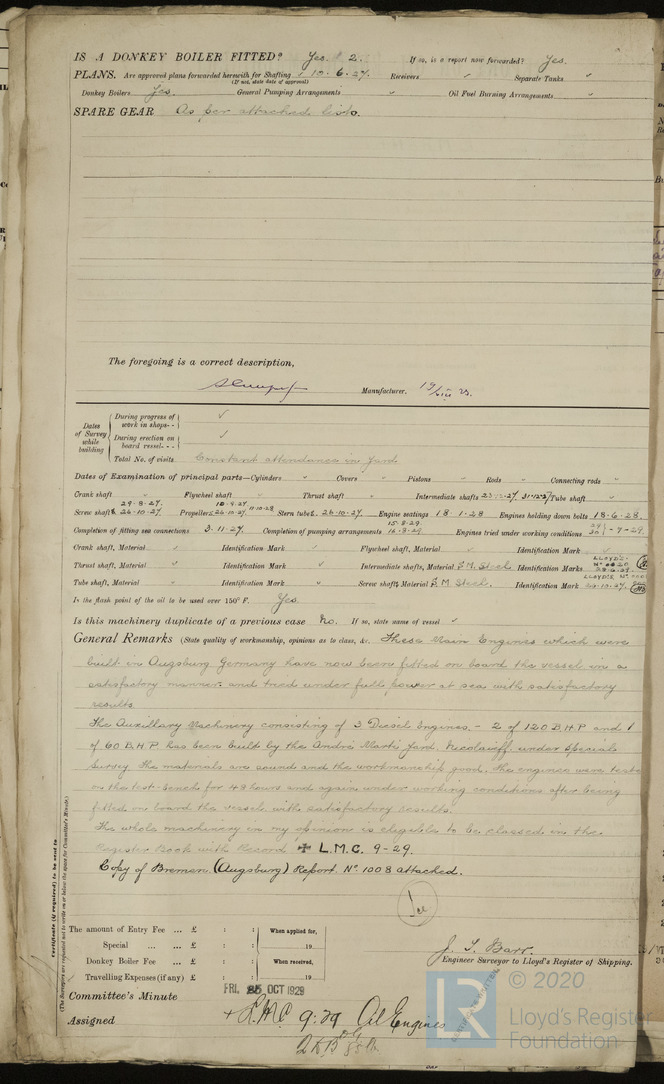 IS A DONKEY BOILER FITTED? Yes. 2. If so, is a report now forwarded? Yes.
PLANS. Are approved plans forwarded herewith for Shafting 10.6.27. Receivers Separate Tanks
(If not, state date of approval)
Donkey Boilers Yes. General Pumping Arrangements Oil Fuel Burning Arrangements
SPARE GEAR As per attached lists.
The foregoing is a correct description,
Manufacturer.
Dates of Survey while building
During progress of work in shops-- ✓
During erection on board vessel--- ✓
Total No. of visits Constant attendance in Yard
Dates of Examination of principal parts—Cylinders " Covers " Pistons " Rods " Connecting rods "
Crank shaft " Flywheel shaft " Thrust shaft " Intermediate shafts Tube shaft
Screw shaft 26.10.27. Propeller Stern tube 26.10.27. Engine seatings 18.1.28 Engines holding down bolts 18.6.28.
Completion of fitting sea connections 3.11.27. Completion of pumping arrangements Engines tried under working conditions 29/30 - 7-29.
Crank shaft, Material " Identification Mark Flywheel shaft, Material " Identification Mark
Thrust shaft, Material " Identification Mark " Intermediate shafts, Material S.M. Steel Identification Marks
Tube shaft, Material " Identification Mark " Screw shaft, Material S.M. Steel. Identification Mark
Is the flash point of the oil to be used over 150°F. Yes
Is this machinery duplicate of a previous case No. If so, state name of vessel
General Remarks (State quality of workmanship, opinions as to class, &c. These Main Engines which were
built in Augsburg Germany have now been fitted on board the vessel in a
satisfactory manner and tried under full power at sea with satisfactory
results.
The Auxillary Machinery consisting of 3 Diesel Engines. - 2 of 120 B.H.P and 1
of 60 B.H.P. has been built by the Andre Marti Yard, Nicolaieff, under Special
Survey. The materials are sound and the workmanship good. The engines were
on the test-bench for 48 hours and again under working conditions after being
fitted on board the vessel with satisfactory results.
The whole machinery in my opinion is eligible to be classed in the
Register Book with Record ✠ L.M.C. 9-29.
Copy of Bremen (Augsburg) Report No. 1008 attached.
Certificate (if required) to be sent to
(The Surveyors are requested not to write on or below the space for Committee's Minute)
The amount of Entry Fee ... £ : : When applied for,
Special ... ... £ : : 19
Donkey Boiler Fee ... £ : : When received,
Travelling Expenses (if any) £ : : 19
J. T. Barr.
Engineer Surveyor to Lloyd's Register of Shipping.
Committee's Minute FRI. 25 OCT 1929
Assigned + L.M.C. 9.29 Oil Engines
© 2020
Lloyd's Register
Foundation